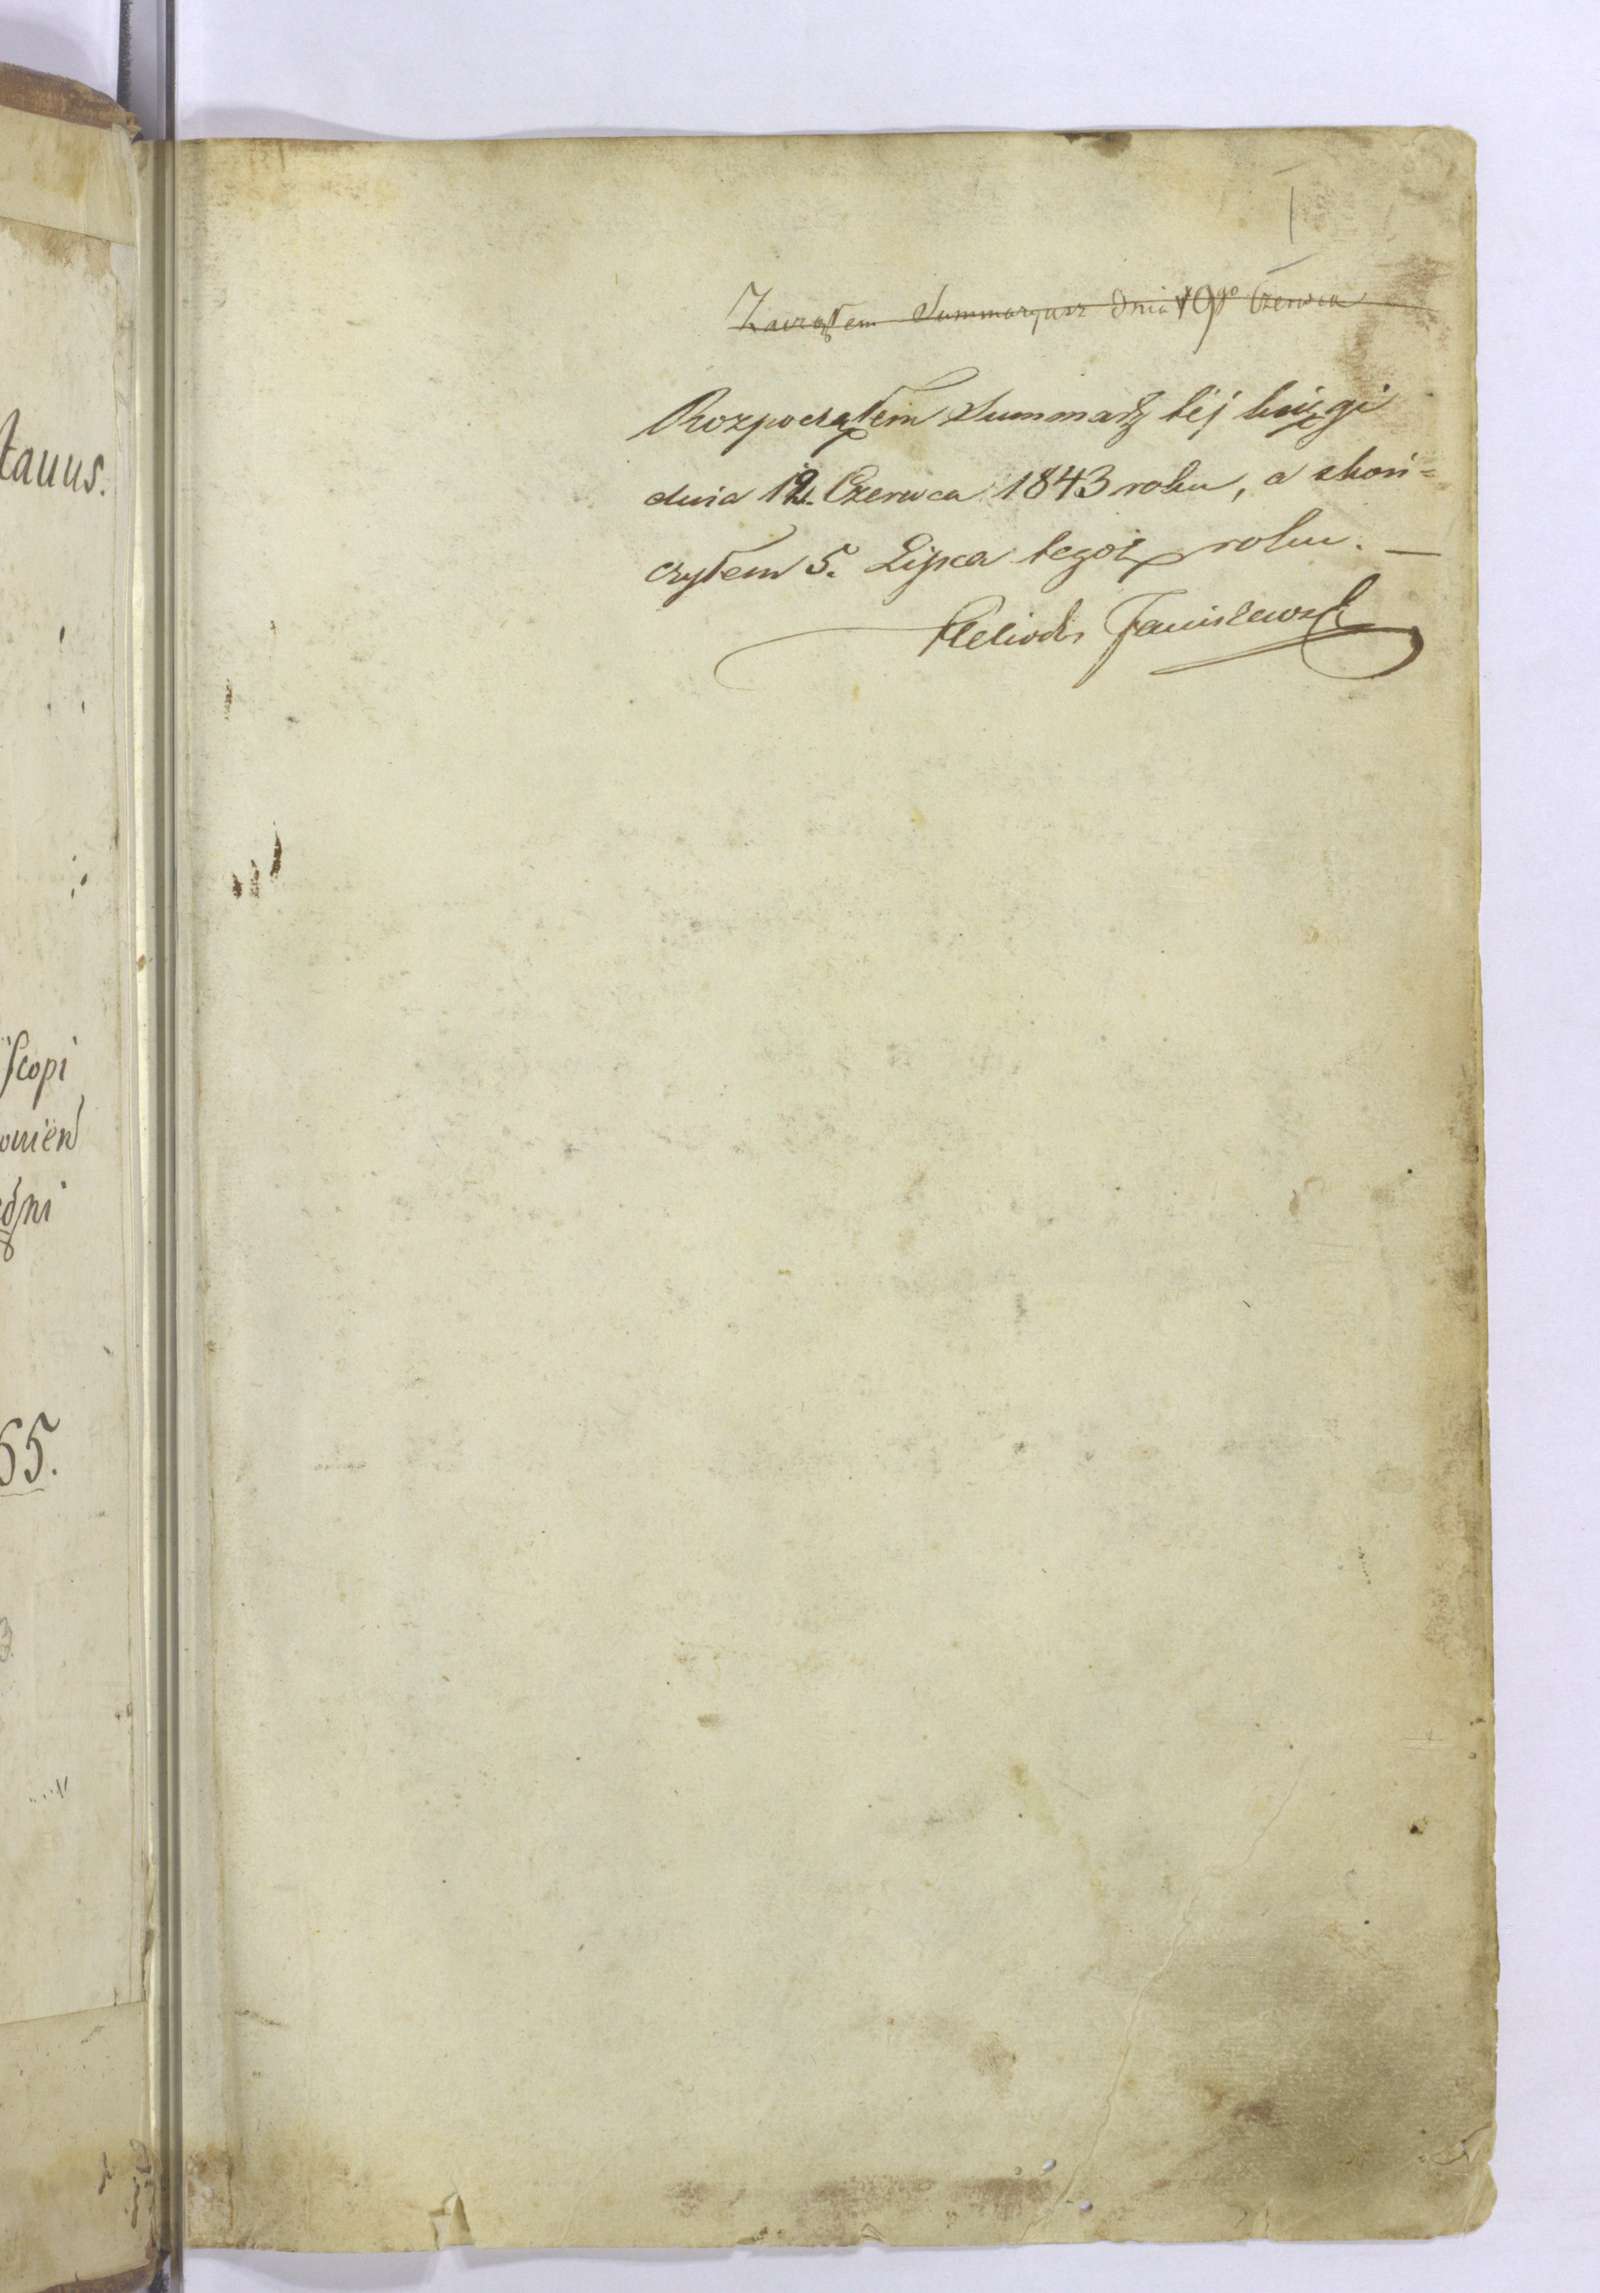 tauus.
iscopi
onień
1
Zacząłem Summaryusz dnia 19go Czerwca
Rozpocząłem Summarz téj księgi
dnia 12. Czerwca 1843 roku, a skoń=
czyłem 5. Lipca tegoż roku. —
Heliodor Janiszewski
65.